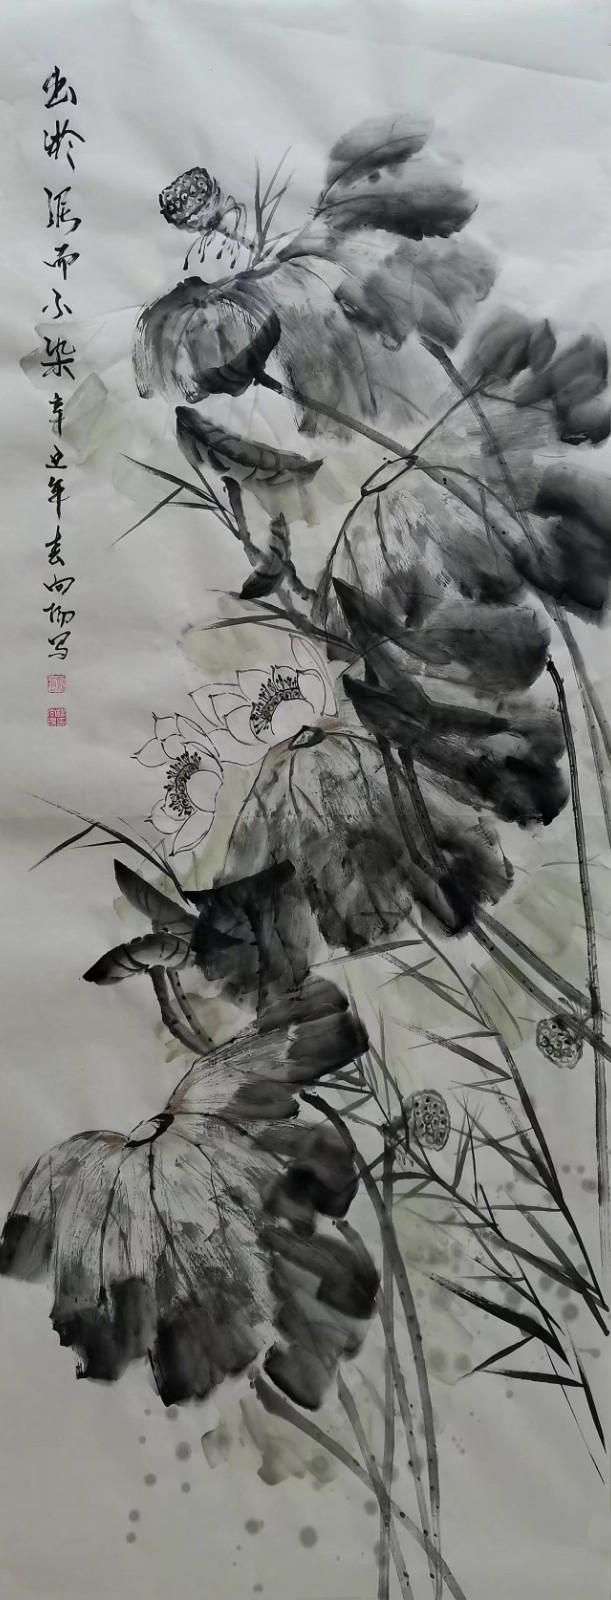 出淤泥而不染辛丑年春向阳写